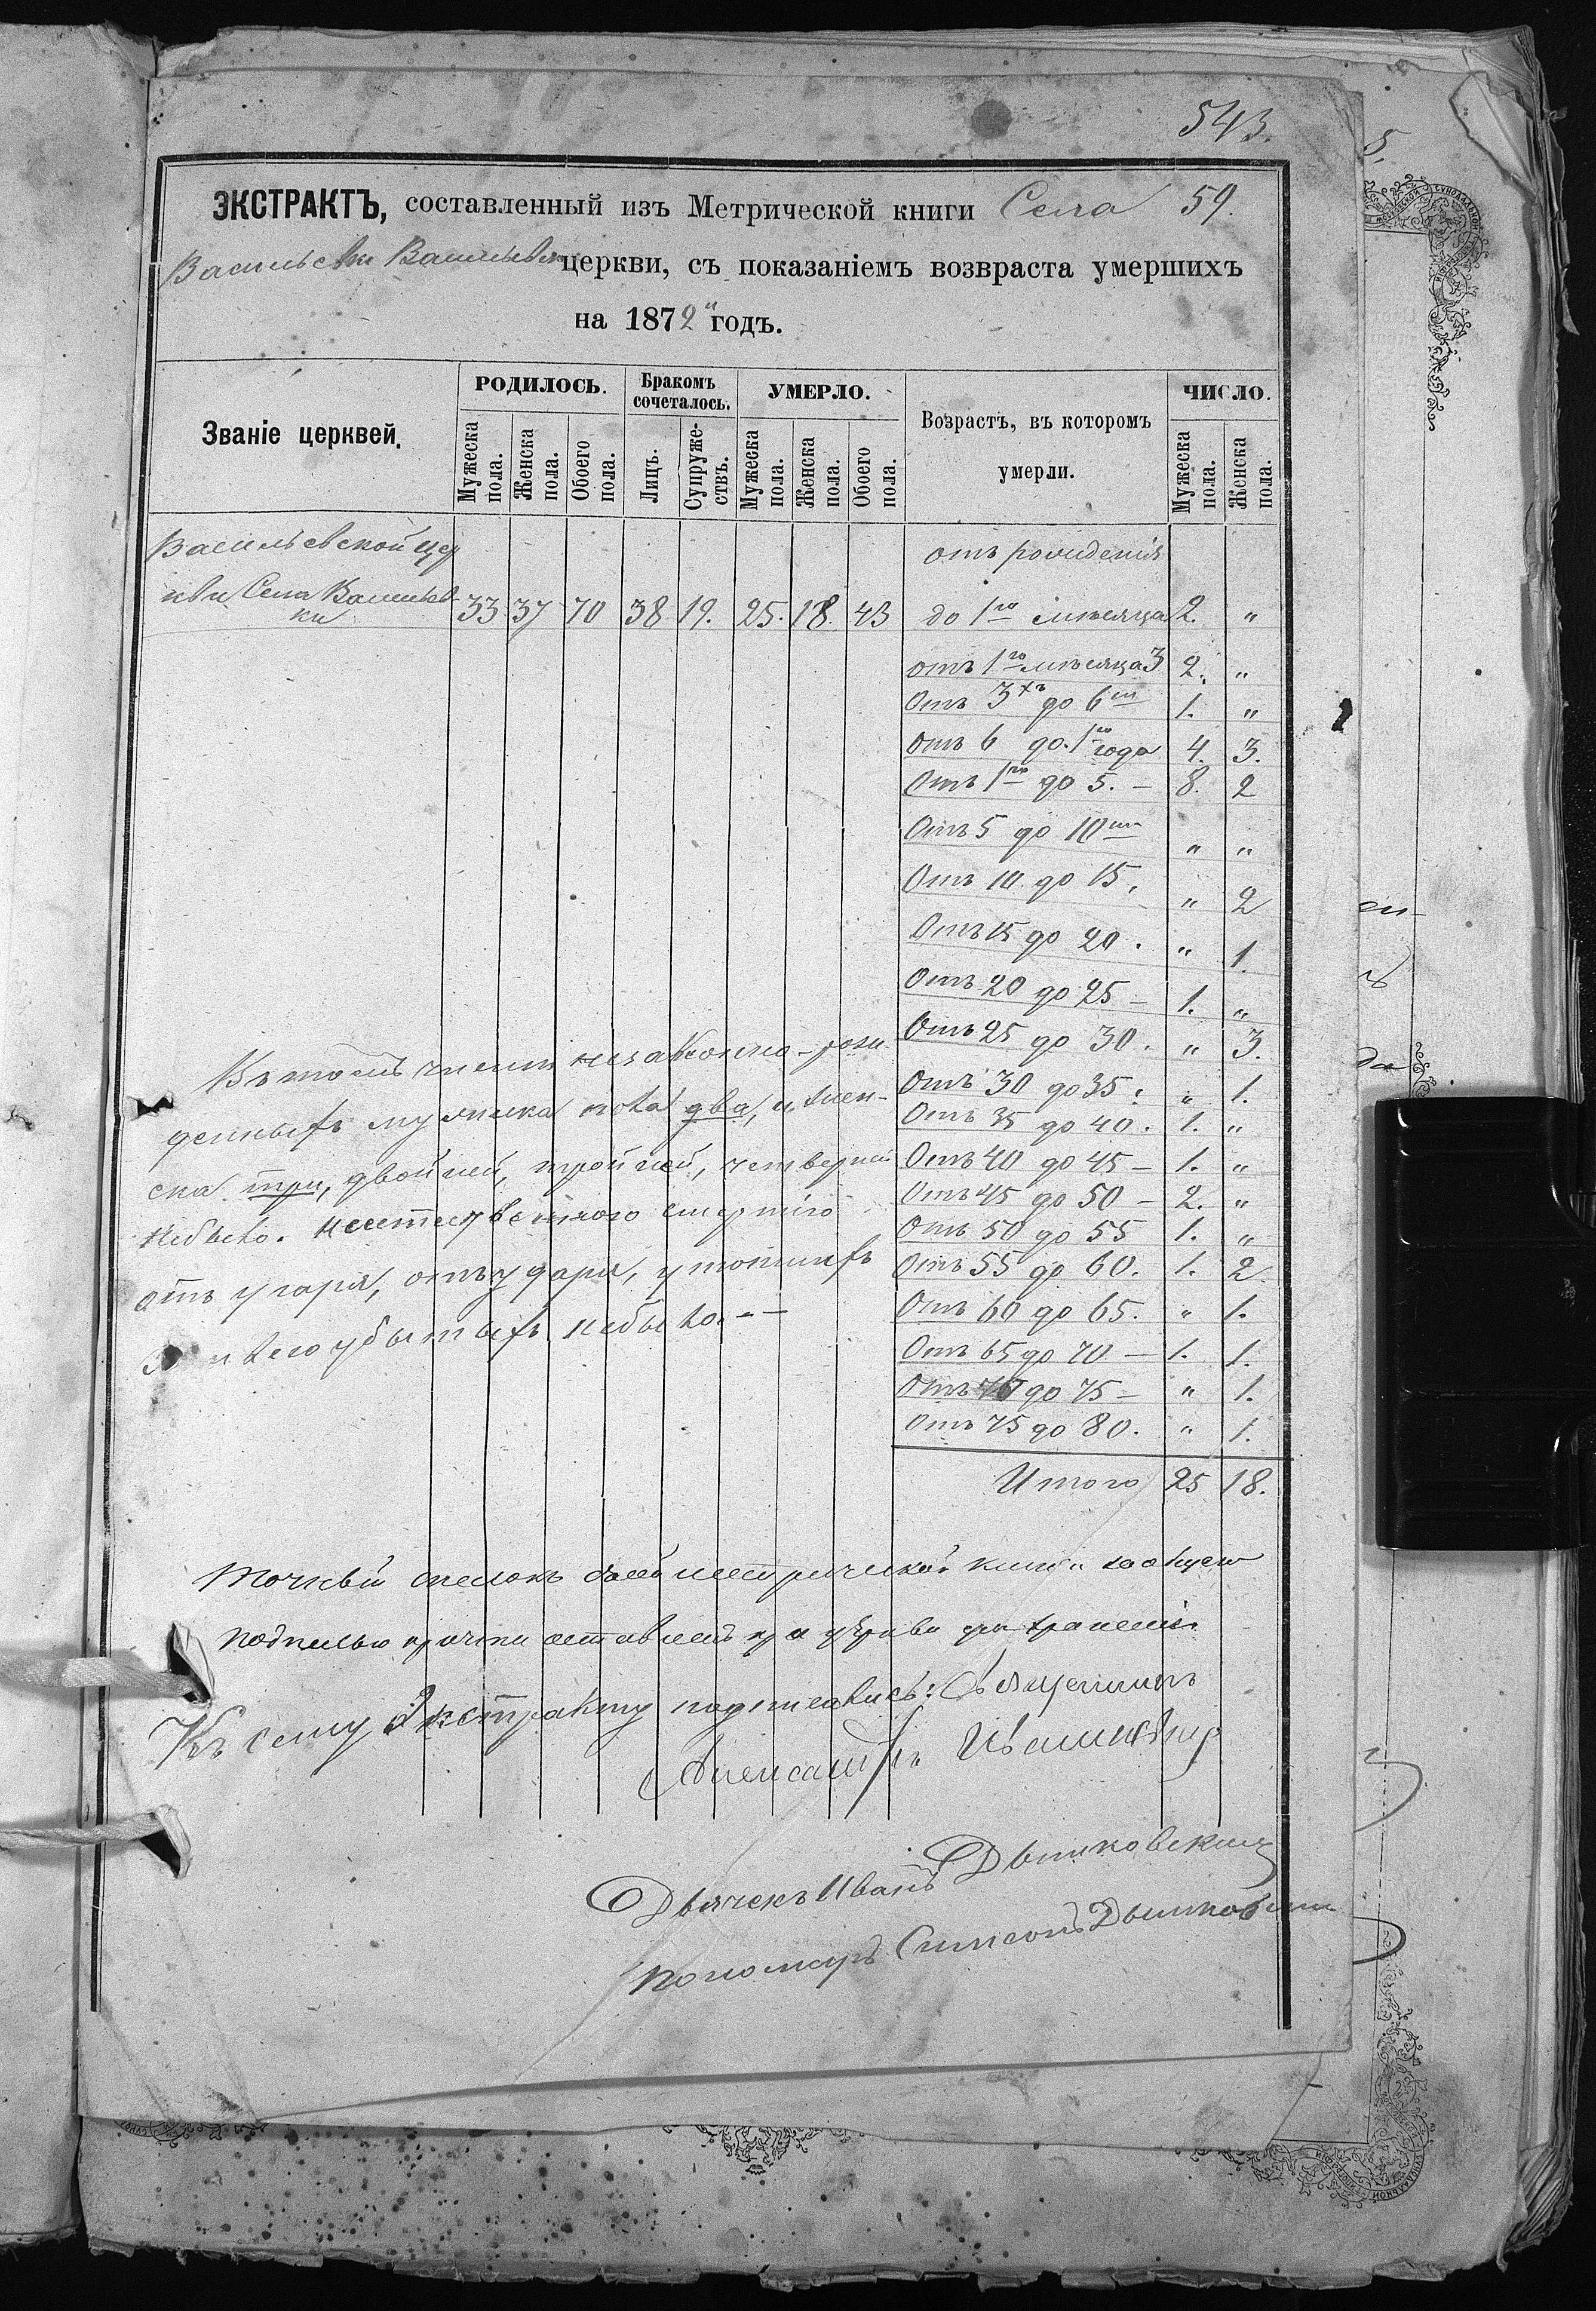 543.
59.
ЭКСТРАКТЪ, составленный изъ Метрической книги Села
Васильевки Васильевской церкви, съ показаніемъ возвраста умершихъ
на 1872й годъ.
Званіе церквей.
РОДИЛОСЬ.
Мужеска пола.
Женска пола.
Обоего пола.
Бракомъ сочеталось.
Лицъ.
Супружествъ.
УМЕРЛО.
Мужеска пола.
Женска пола.
Обоего пола.
Возрастъ, въ которомъ умерли.
ЧИСЛО.
Мужеска пола.
Женска пола.
Васильевской цер
кви Села Васильев-
ки 33 37 70 38 19. 25. 18. 43
отъ рожденія
до 1го мѣсяца 2. "
отъ 1го мѣсяца 3 2. "
Отъ 3хъ до 6ти 1. "
Отъ 6 до 1го года 4. 3.
Отъ 1го до 5. — 8. 2
Отъ 5 до 10ти " "
Отъ 10 до 15. " 2
Отъ 15 до 20. " 1.
Отъ 20 до 25 — 1. "
Отъ 25 до 30. " 3.
Отъ 30 до 35. " 1.
Отъ 35 до 40. 1. "
Отъ 40 до 45 — 1. "
Отъ 45 до 50 — 2. "
Отъ 50 до 55 1. "
Отъ 55 до 60. 1. 2
Отъ 60 до 65. " 1.
Отъ 65 до 70 — 1. 1.
Отъ 70 до 75 — " 1.
Отъ 75 до 80. " 1.
Итого 25 18.
Въ томъ числѣ незаконно-рож
денныхъ мужеска пола два, и жен-
ска три, двойней, тройней, четверней
небыло.
отъ угара, отъ удара, утопшихъ
небыло. — —
Точный списокъ метрической книги
подписью причта оставленъ при церкви хранения
Къ сему Экстракту подписались: Священникъ
Александръ
Дьячекъ Иванъ Дышковскій
Пономарь Симеонъ Дышковскій